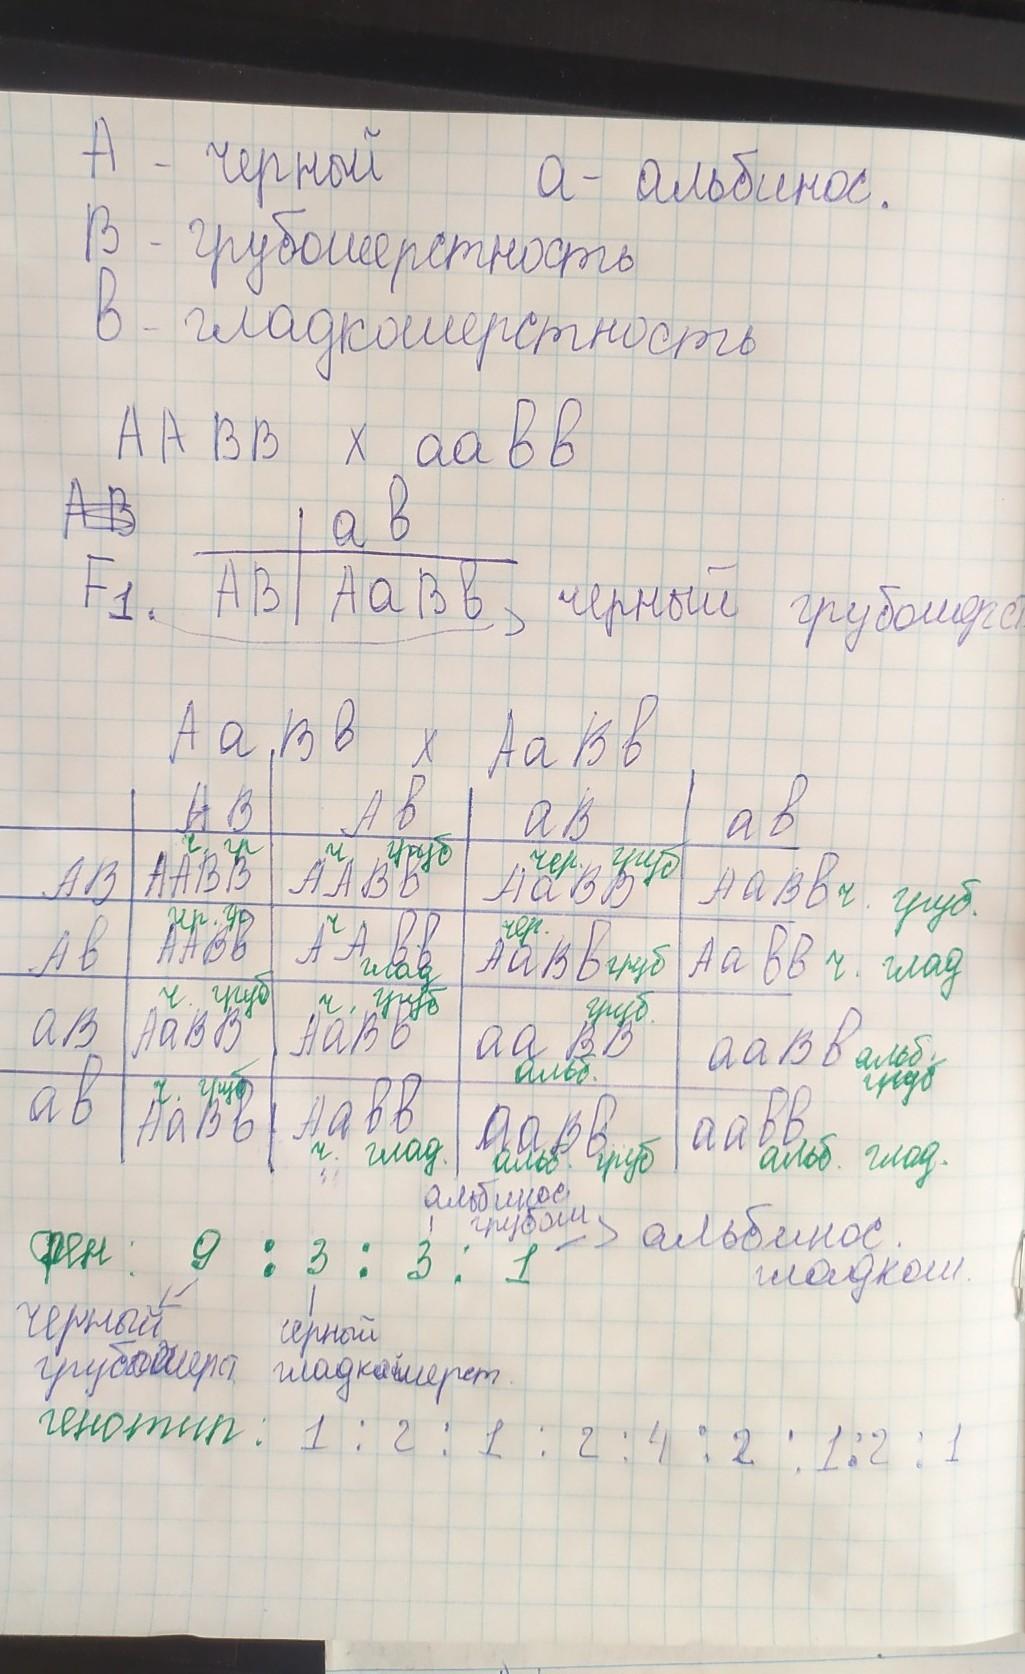 А - черный а - альбинос.
В - грубошерстность
в - гладкошерстность
ААВВ х аавв
АВ
ав
F1. АВ АаВв черный грубошерст
АаВв х АаВв
АВ Ав аВ ав
ч. гр ч груб чер. груб
АВ ААВВ ААВв АаВВ АаВв ч. груб.
чер. гр ч чер.
Ав ААВв ААвв глад АаВв груб Аавв ч. глад
ч. груб ч. груб груб.
аВ АаВВ АаВв ааВВ ааВв альб. груб
альб.
ч. груб
ав АаВв Аавв ааВв аавв
ч. глад. альб. груб альб. глад.
альбинос грубош
фен: 9 : 3 : 3 : 1 альбинос. гладкош.
черный черный
грубошерст гладкошерст.
генотип: 1 : 2 : 1 : 2 : 4 : 2 : 1 : 2 : 1